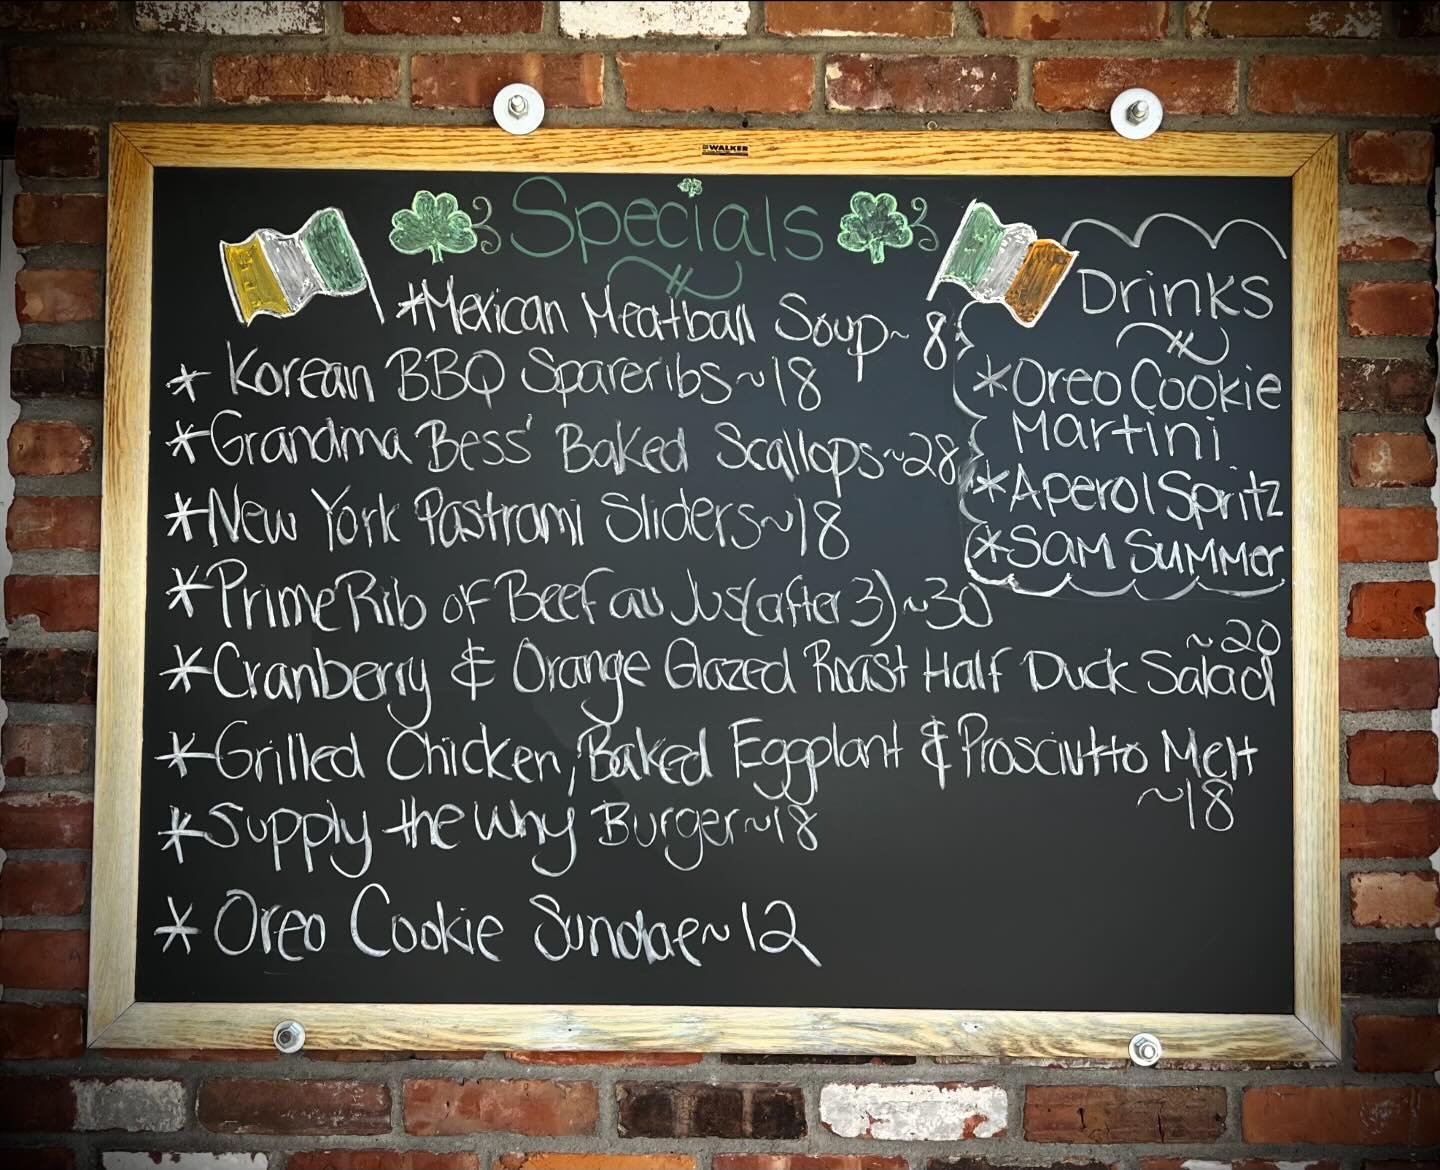 WALKER
Specials
*Mexican Meatball Soup~ 8
* Korean BBQ Spareribs~18
*Grandma Bess' Baked Scallops~28
*New York Pastrami Sliders~18
*Prime Rib of Beef au Jus(after 3)~30
*Cranberry & Orange Glazed Roast Half Duck Salad
~20
*Grilled Chicken, Baked Eggplant & Prosciutto Melt
~18
*Supply the Why Burger~18
* Oreo Cookie Sundae~12
Drinks
*Oreo Cookie
Martini
*Aperol Spritz
*Sam Summer